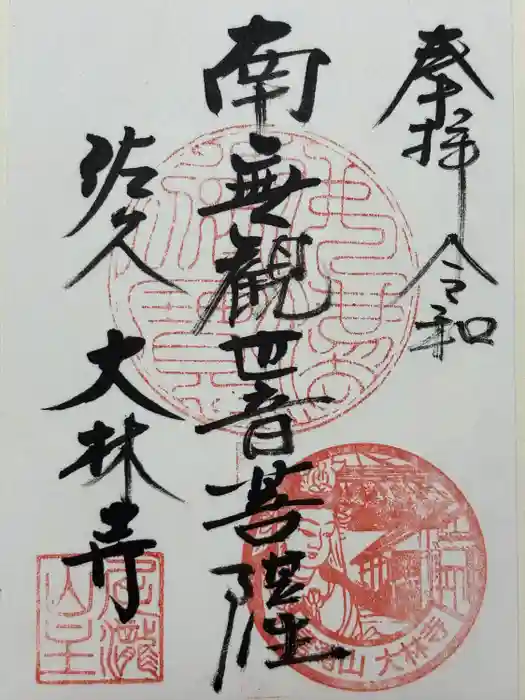 奉拝 令和
南無観世音菩薩
佐久 大林寺
山 大林寺